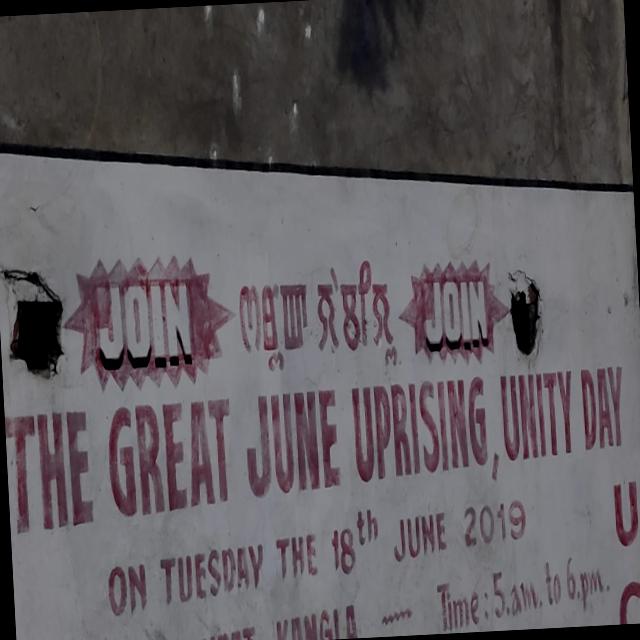 JOIN JOIN
THE GREAT JUNE UPRISING, UNITY DAY
ON TUESDAY THE 18th JUNE 2019
KANGLA — Time: 5.am. to 6.pm.